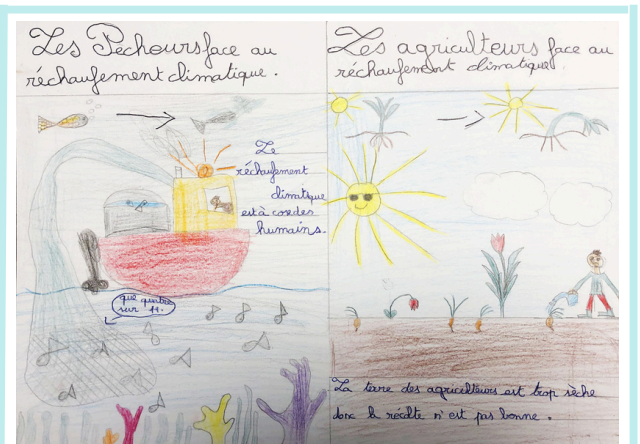 Les Pecheurs face au
réchaufement climatique.
Le
réchaufement
climatique
est à cose des
humains.
que quatre
sur 11.
Les agriculteurs face au
réchaufement climatique.
La terre des agriculteurs est trop sèche
donc la récolte n'est pas bonne.